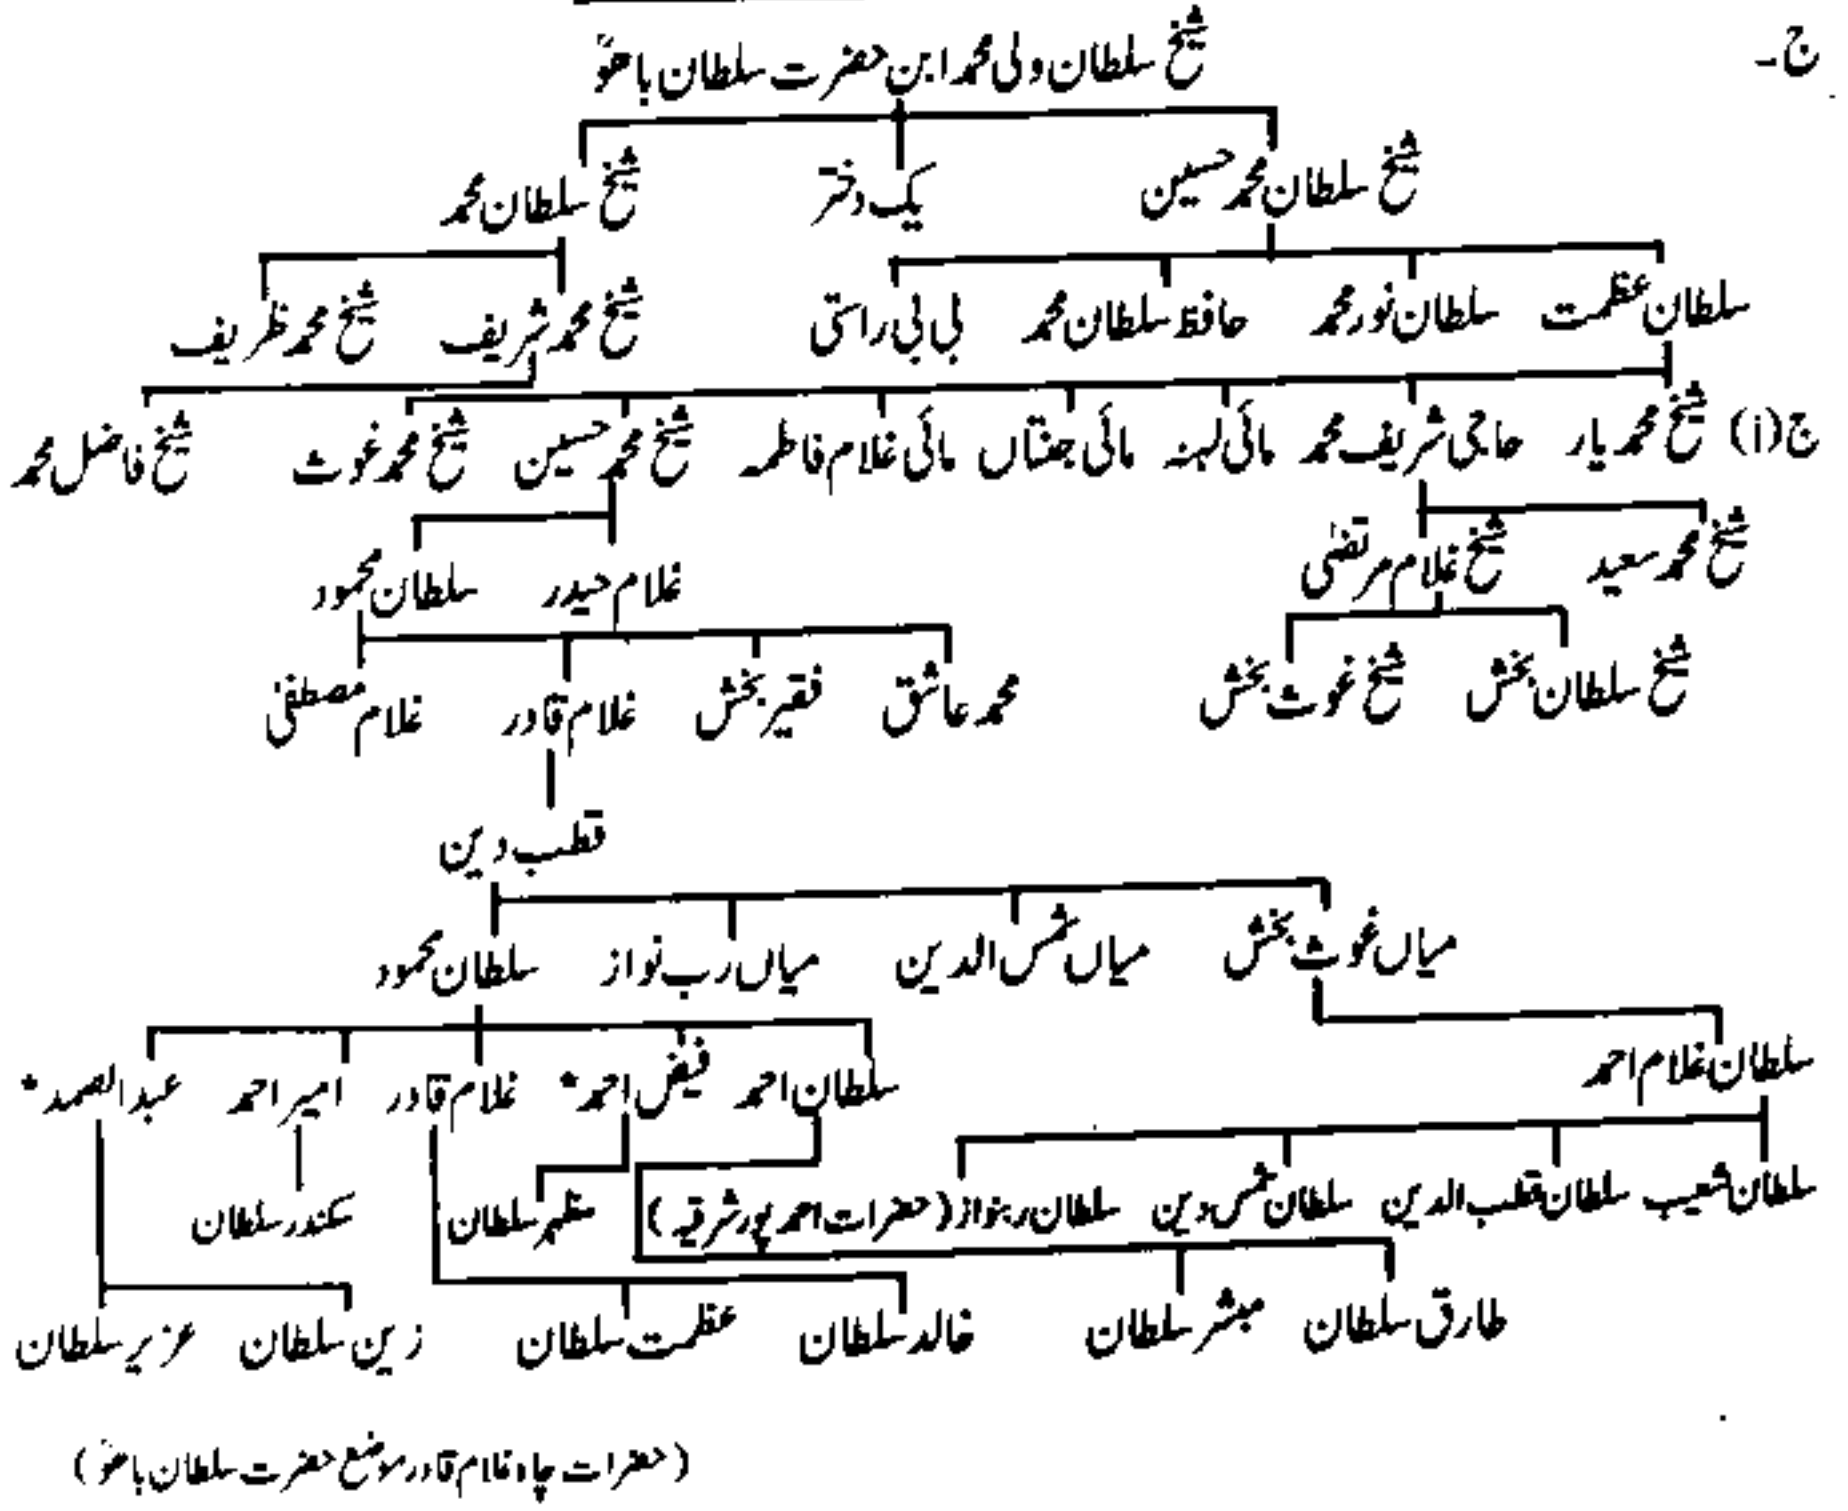 ج۔
شیخ سلطان ولی محمد ابن حضرت سلطان باھوؒ
شیخ سلطان محمد حسین یک دختر شیخ سلطان محمد
سلطان عظمت سلطان نور محمد حافظ سلطان محمد بی بی راستی شیخ محمد شریف شیخ محمد ظریف
ج(i) شیخ محمد یار حاجی شریف محمد مائی لہنہ مائی جنتاں مائی غلام فاطمہ شیخ محمد حسین شیخ محمد غوث شیخ فاضل محمد
شیخ محمد سعید شیخ غلام مرتضیٰ غلام حیدر سلطان محمود
شیخ سلطان بخش شیخ غوث بخش محمد عاشق فقیر بخش غلام قادر غلام مصطفیٰ
قطب دین
میاں غوث بخش میاں شمس الدین میاں رب نواز سلطان محمود
سلطان غلام احمد سلطان احمد فیض احمد* غلام قادر امیر احمد عبدالصمد*
سلطان شعیب سلطان قطب الدین سلطان شمس دین سلطان ربنواز (حضرات احمد پور شرقیہ) مظہر سلطان سکندر سلطان
طارق سلطان مبشر سلطان خالد سلطان عظمت سلطان زین سلطان عزیر سلطان
(حضرات چاہ غلام قادر موضع حضرت سلطان باھوؒ)